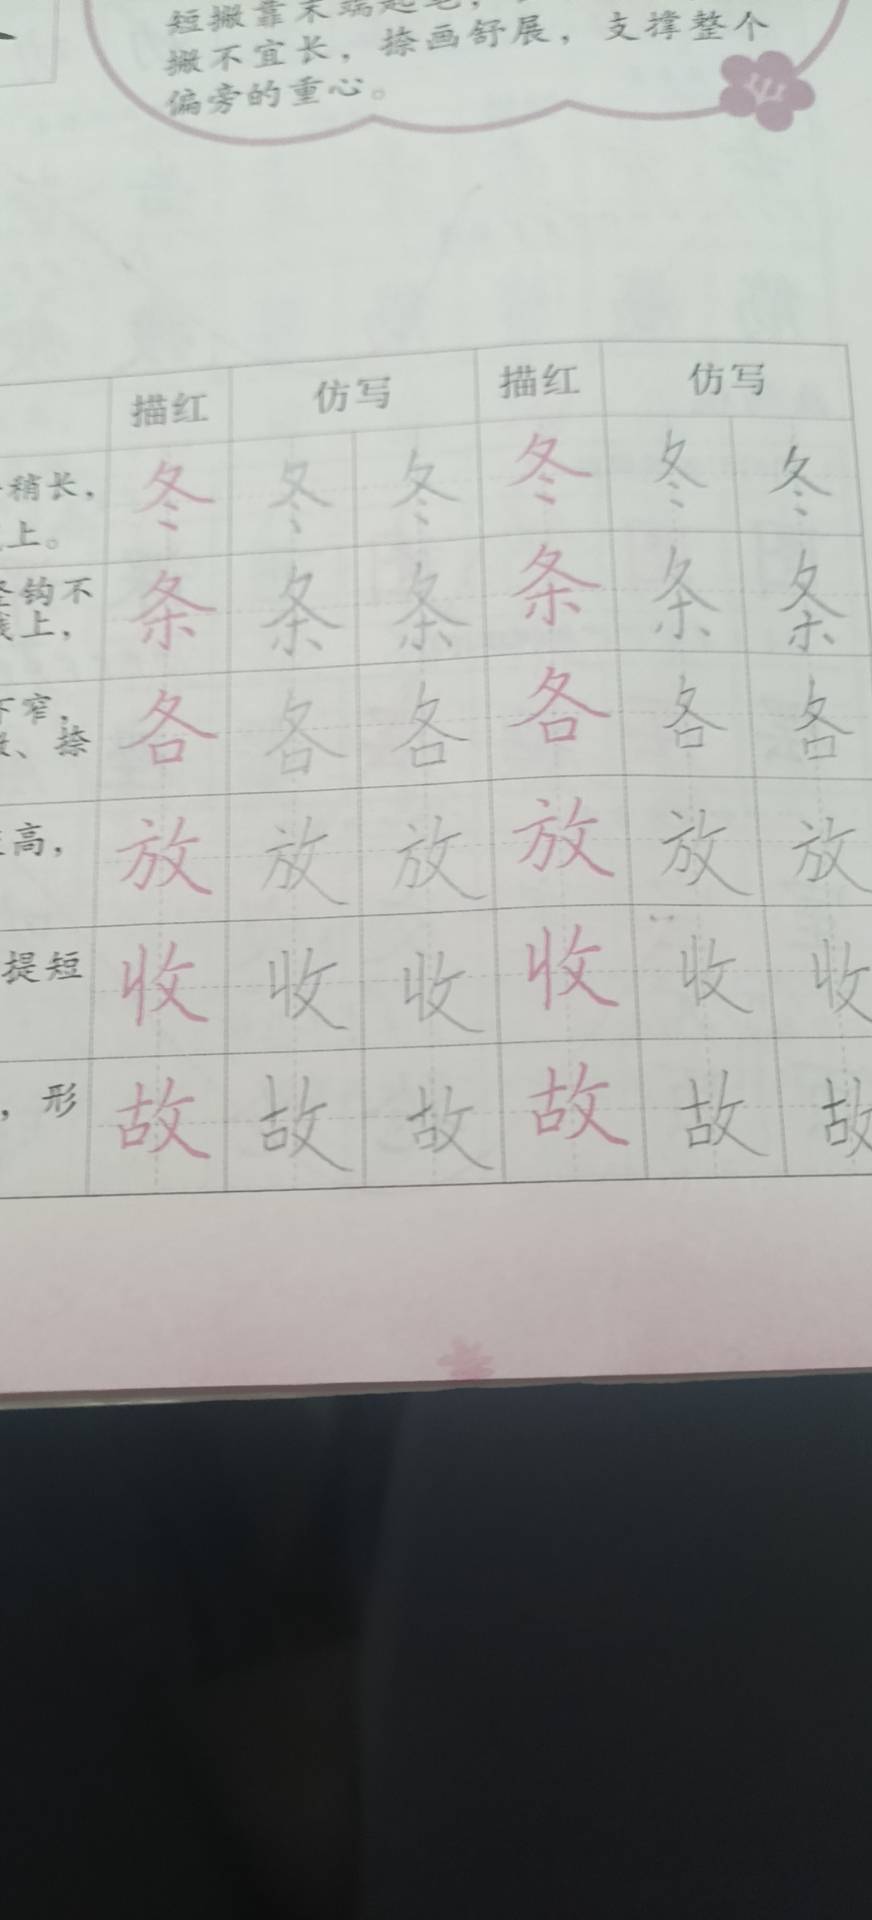 短撇靠末端起笔，
撇不宜长，捺画舒展，支撑整个
偏旁的重心。
描红 仿写 描红 仿写
稍长，
上。
冬 冬 冬 冬 冬 冬
竖钩不
线上，
条 条 条 条 条 条
下窄，
撇、捺
各 各 各 各 各 各
高，
放 放 放 放 放 放
提短
收 收 收 收 收 收
，形
故 故 故 故 故 故